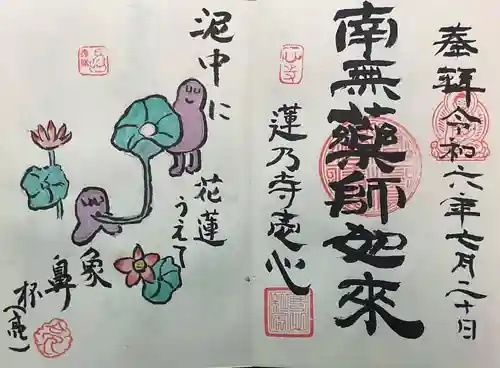 奉拝 令和六年七月二十日
南無薬師如來
蓮乃寺壱心
泥中に
花蓮
うえて
象
鼻
杯(亮)